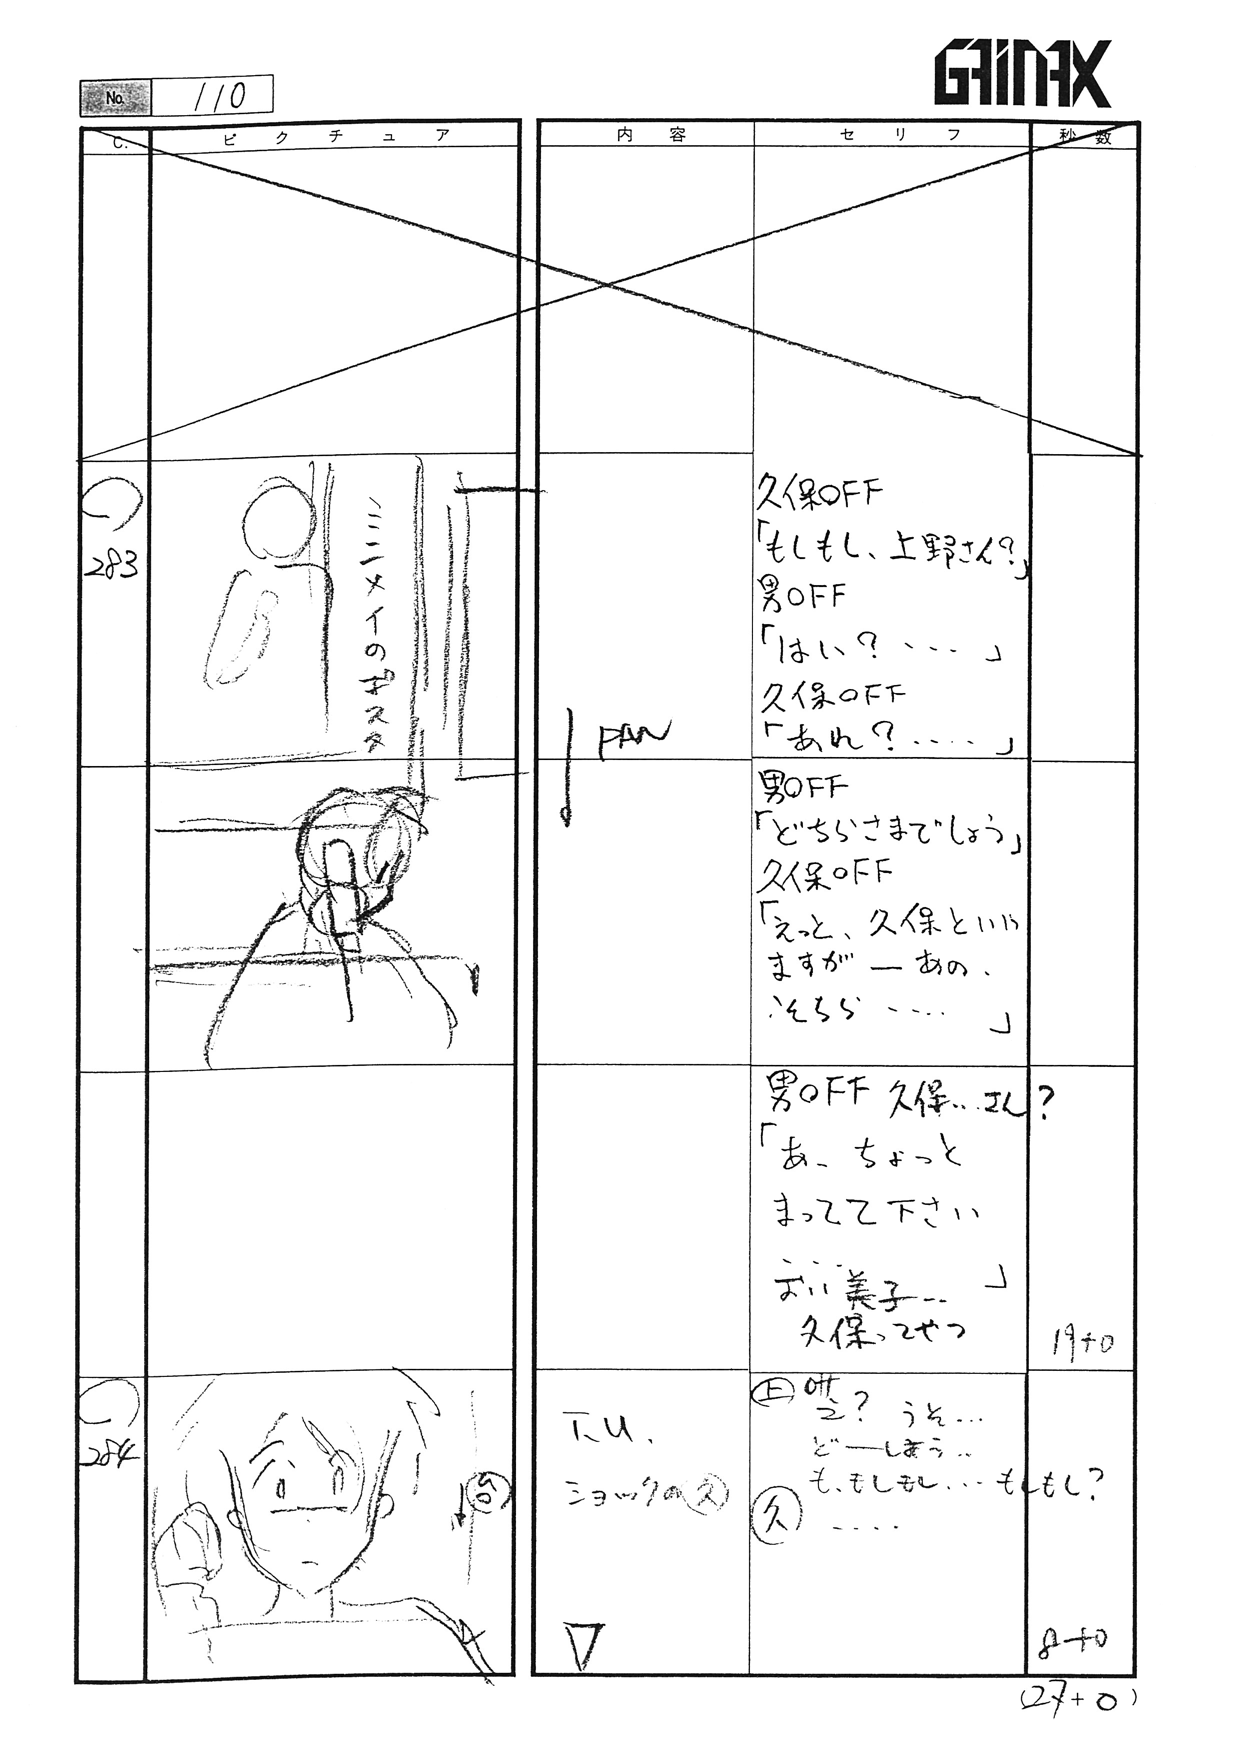 GAINAX
No. 110
C. ピクチュア 内容 セリフ 秒数
283
ミンメイのポスタ
PAN
久保OFF
「もしもし、上野さん?」
男OFF
「はい?‥‥」
久保OFF
「あれ?‥‥」
男OFF
「どちらさまでしょう」
久保OFF
「えっと、久保といい
ますが ー あの、
そちら ‥‥ 」
男OFF 久保‥さん?
「あ、ちょっと
まってて下さい
‥‥ 」
おい 美子‥
久保ってやつ
19+0
284
T.U.
ショックの久
上
え? うそ…
どーしよう‥
も、もしもし…もしもし?
久
‥‥
8+0
(27+0)